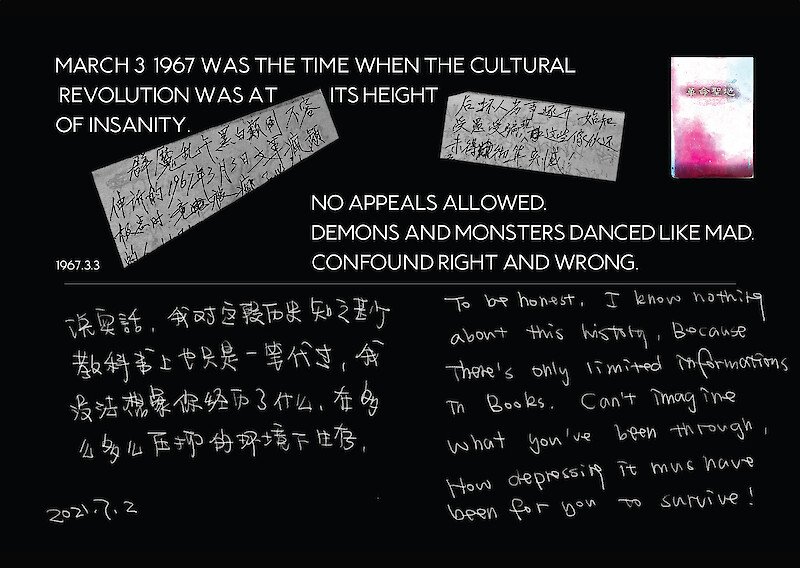 MARCH 3 1967 WAS THE TIME WHEN THE CULTURAL
REVOLUTION WAS AT ITS HEIGHT
OF INSANITY.
革命聖地
群魔乱舞 黑白颠倒 不容
申诉的1967年3月3日文革疯
NO APPEALS ALLOWED.
DEMONS AND MONSTERS DANCED LIKE MAD.
CONFOUND RIGHT AND WRONG.
1967.3.3
说实話，我对这段历史知之甚少
教科书上也只是一笔代过，我
没法想象你经历了什么，在多
么多么压抑的环境下生存，
2021.7.2
To be honest, I know nothing
about this history, Because
there's only limited informations
In Books. Can't imagine
what you've been through,
How depressing it mus have
been for you to survive!